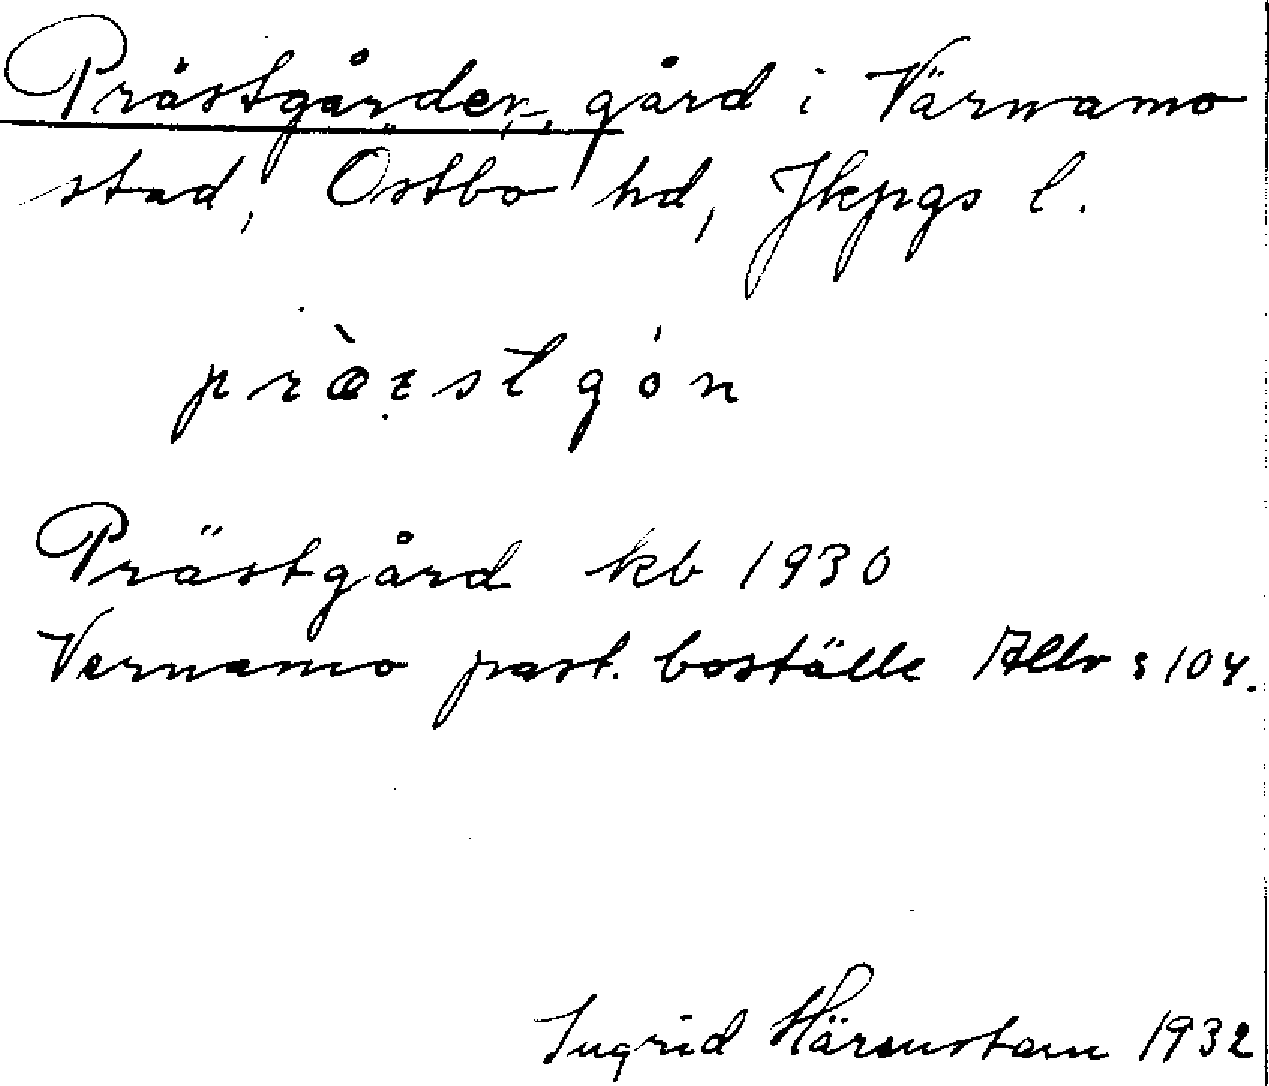 Prästgården, gård i Värnamo
stad, Östbo hd, Jkpgs l.
præ̀ɛstgón
Prästgård kb 1930
Vernamo past. boställe Allv s 104.
Ingrid Härenstam 1932